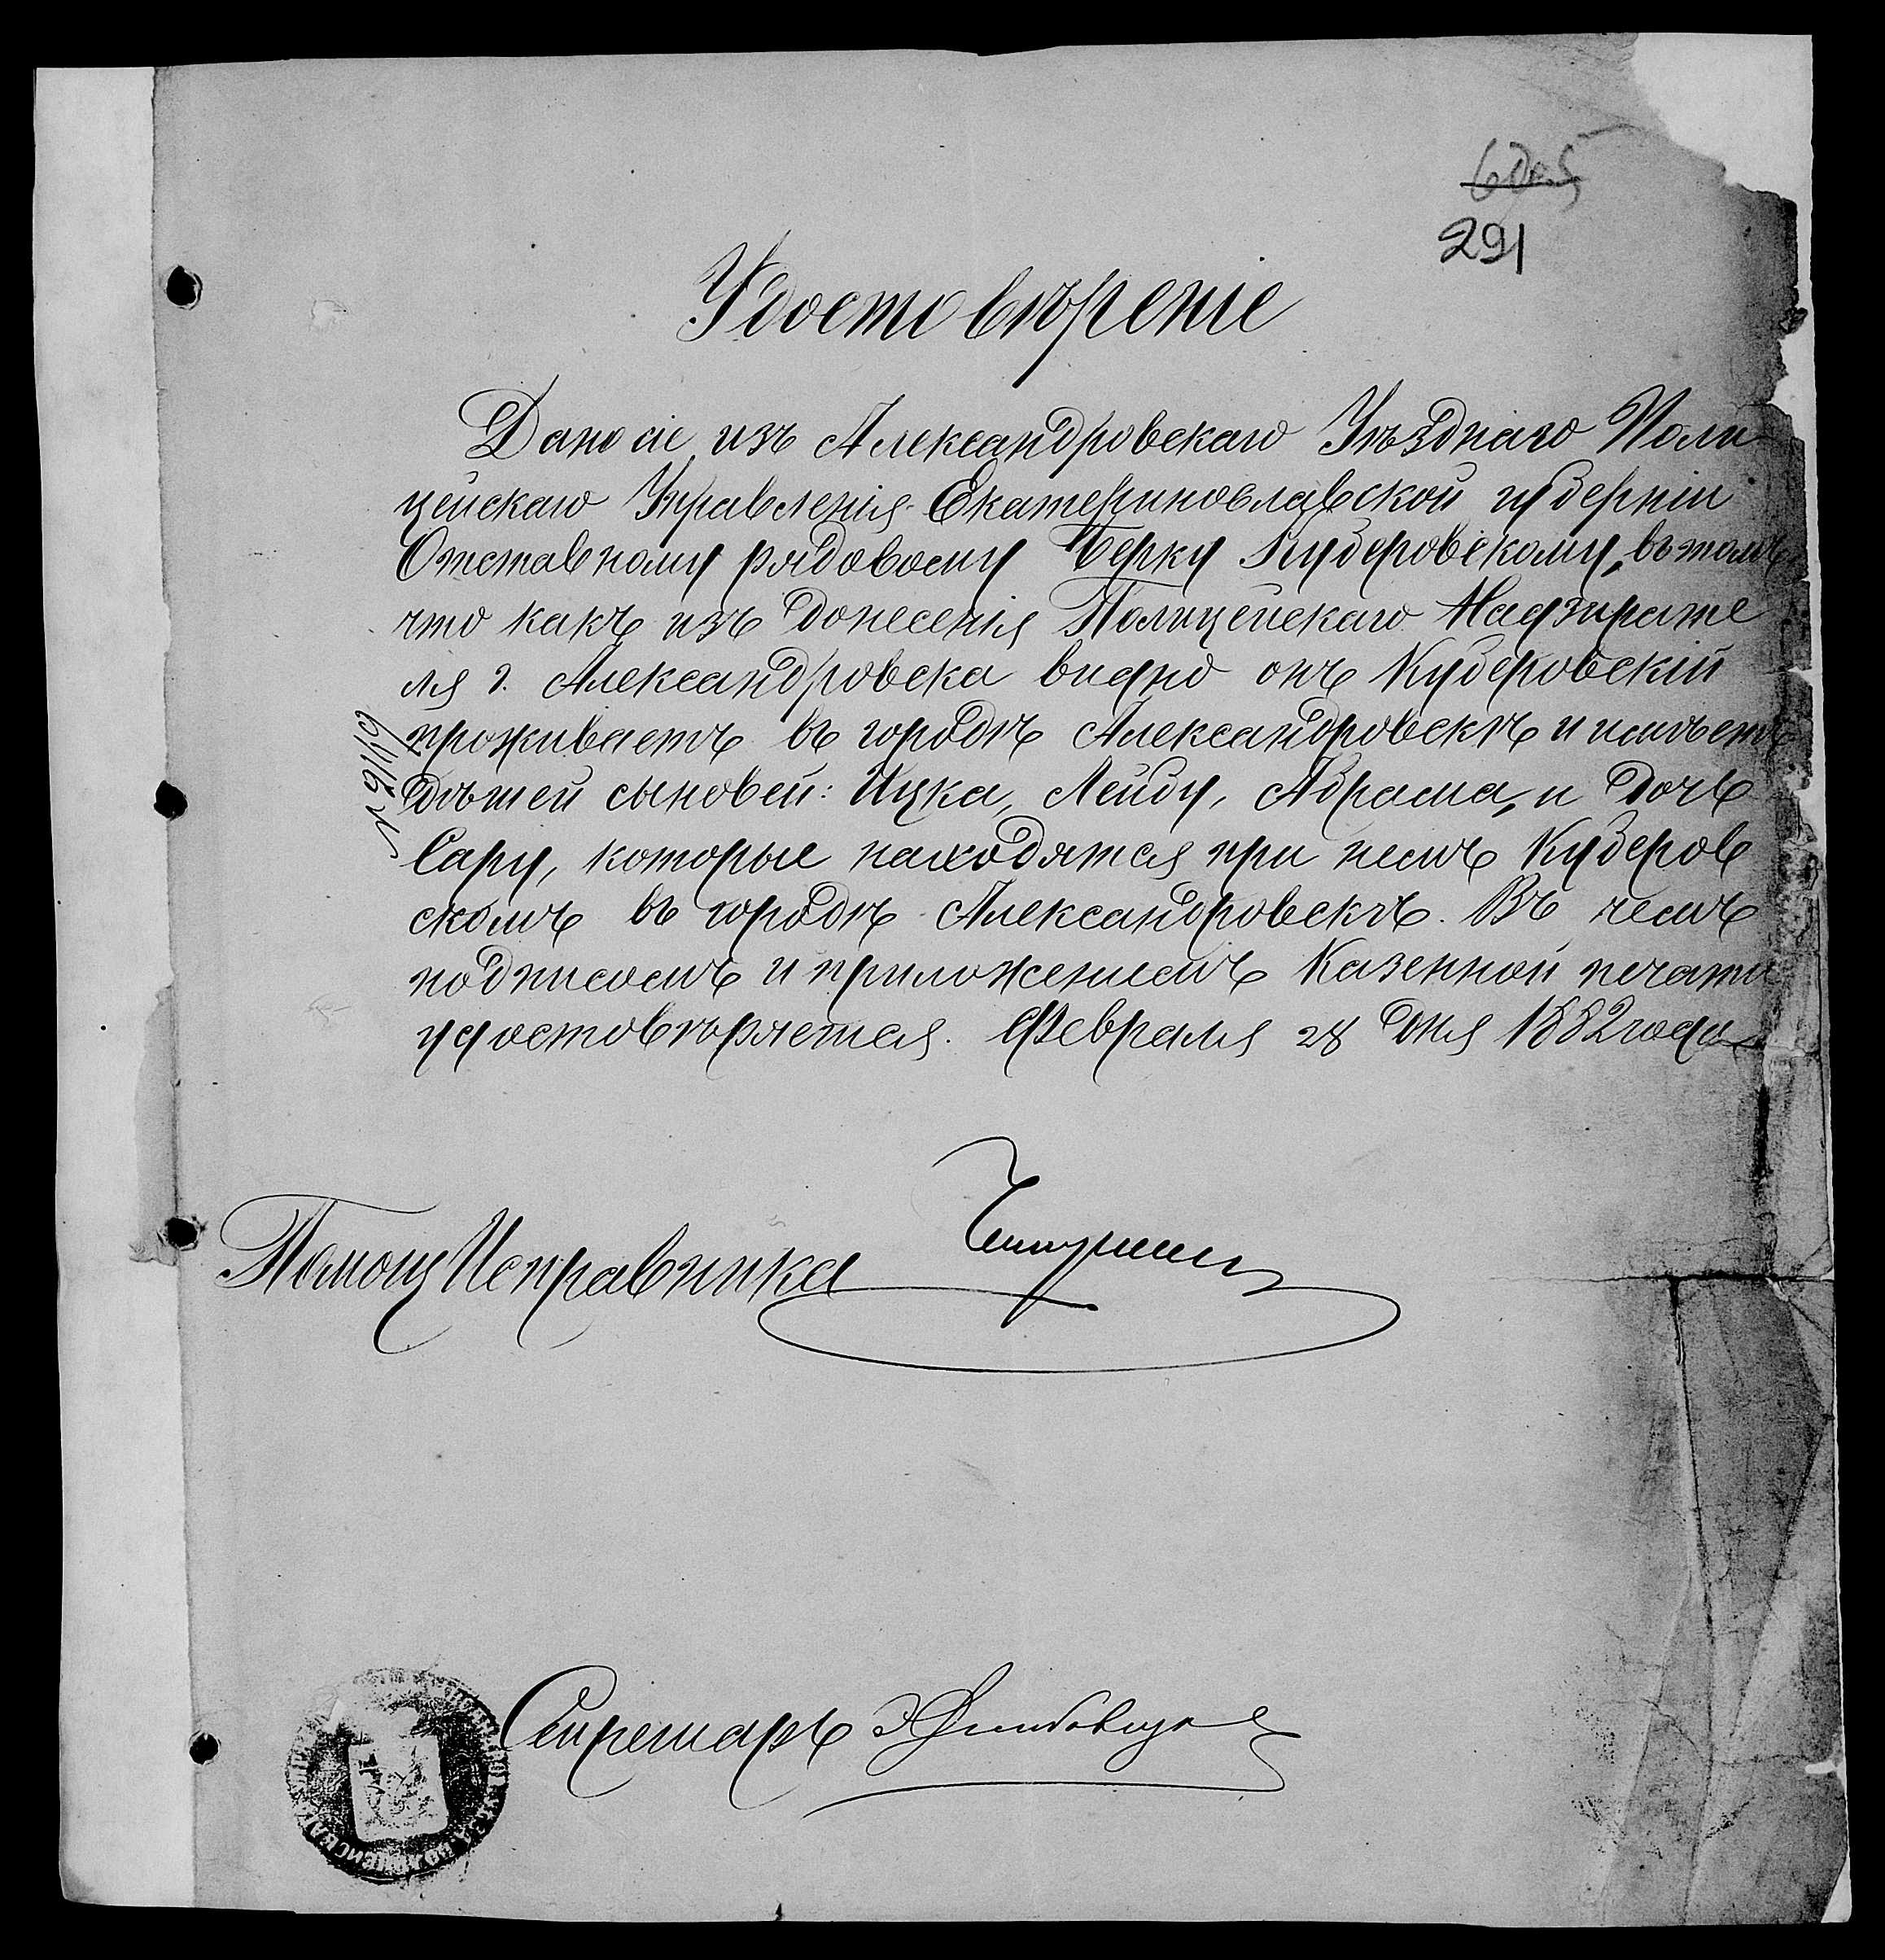 291
Удостовѣреніе
Дано сіе изъ Александровскаго Уѣзднаго Поли
цейскаго Управленія Екатеринославской губерніи
Отставному рядовому Берку Кудеровскому, въ томъ
что какъ изъ донесенія Полицейскаго Надзирате
ля г. Александровска видно онъ Кудеровскій
проживаетъ въ городѣ Александровскѣ и имѣетъ
дѣтей сыновей: Ицка, Лейбу, Абрама, и дочь
Сару, которые находятся при немъ Кудеров
скомъ въ городѣ Александровскѣ. Въ чемъ
подписомъ и приложеніемъ Казенной печати
удостовѣряется. Февраля 28 дня 1882 года
Помощ Исправника
Секретарь